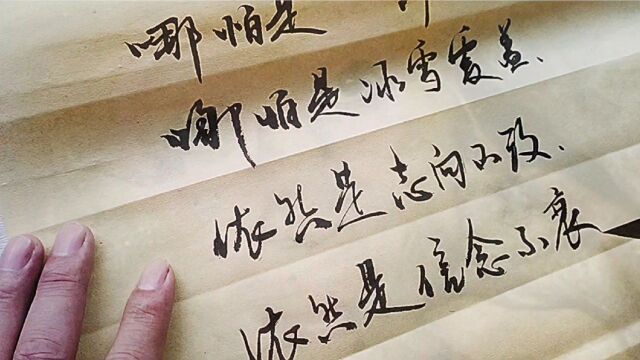 哪怕是
哪怕是冰雪覆盖、
依然是志向不改、
依然是信念不衰